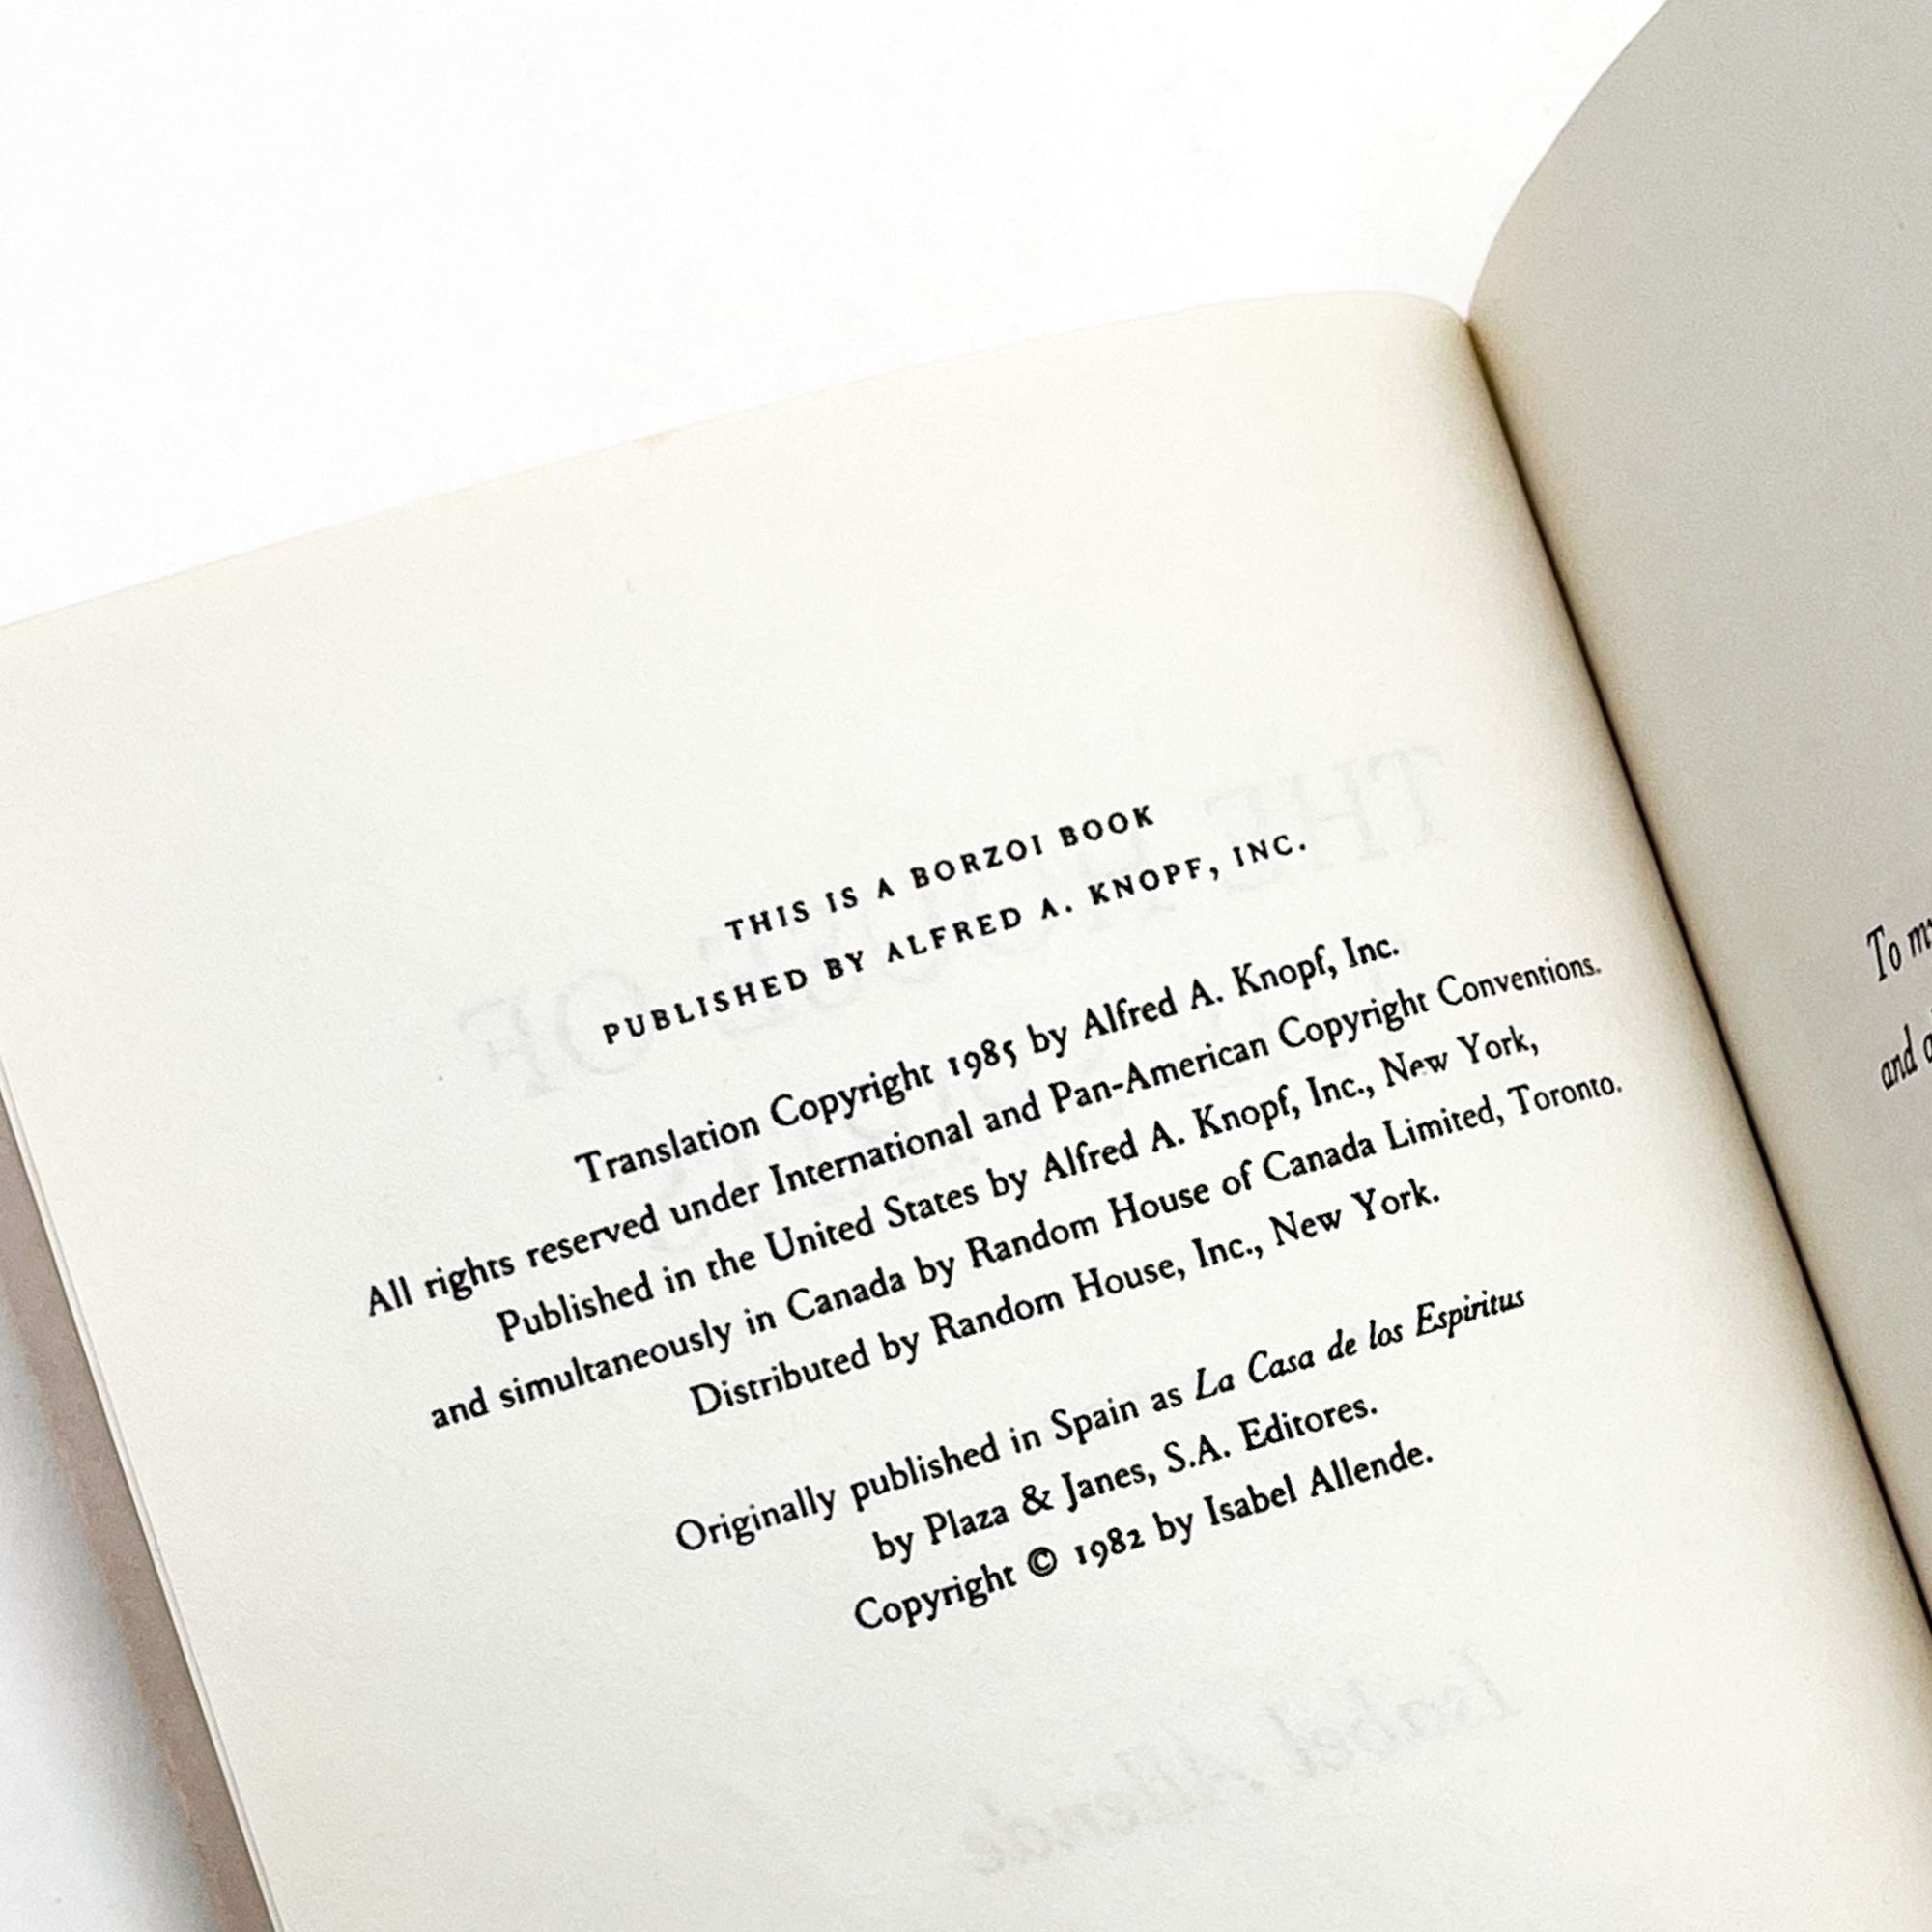 THIS IS A BORZOI BOOK
PUBLISHED BY ALFRED A. KNOPF, INC.
Translation Copyright 1985 by Alfred A. Knopf, Inc.
All rights reserved under International and Pan-American Copyright Conventions.
Published in the United States by Alfred A. Knopf, Inc., New York,
and simultaneously in Canada by Random House of Canada Limited, Toronto.
Distributed by Random House, Inc., New York.
Originally published in Spain as La Casa de los Espiritus
by Plaza & Janes, S.A. Editores.
Copyright © 1982 by Isabel Allende.
THE
HOUSE OF
Isabel Allende
To
and